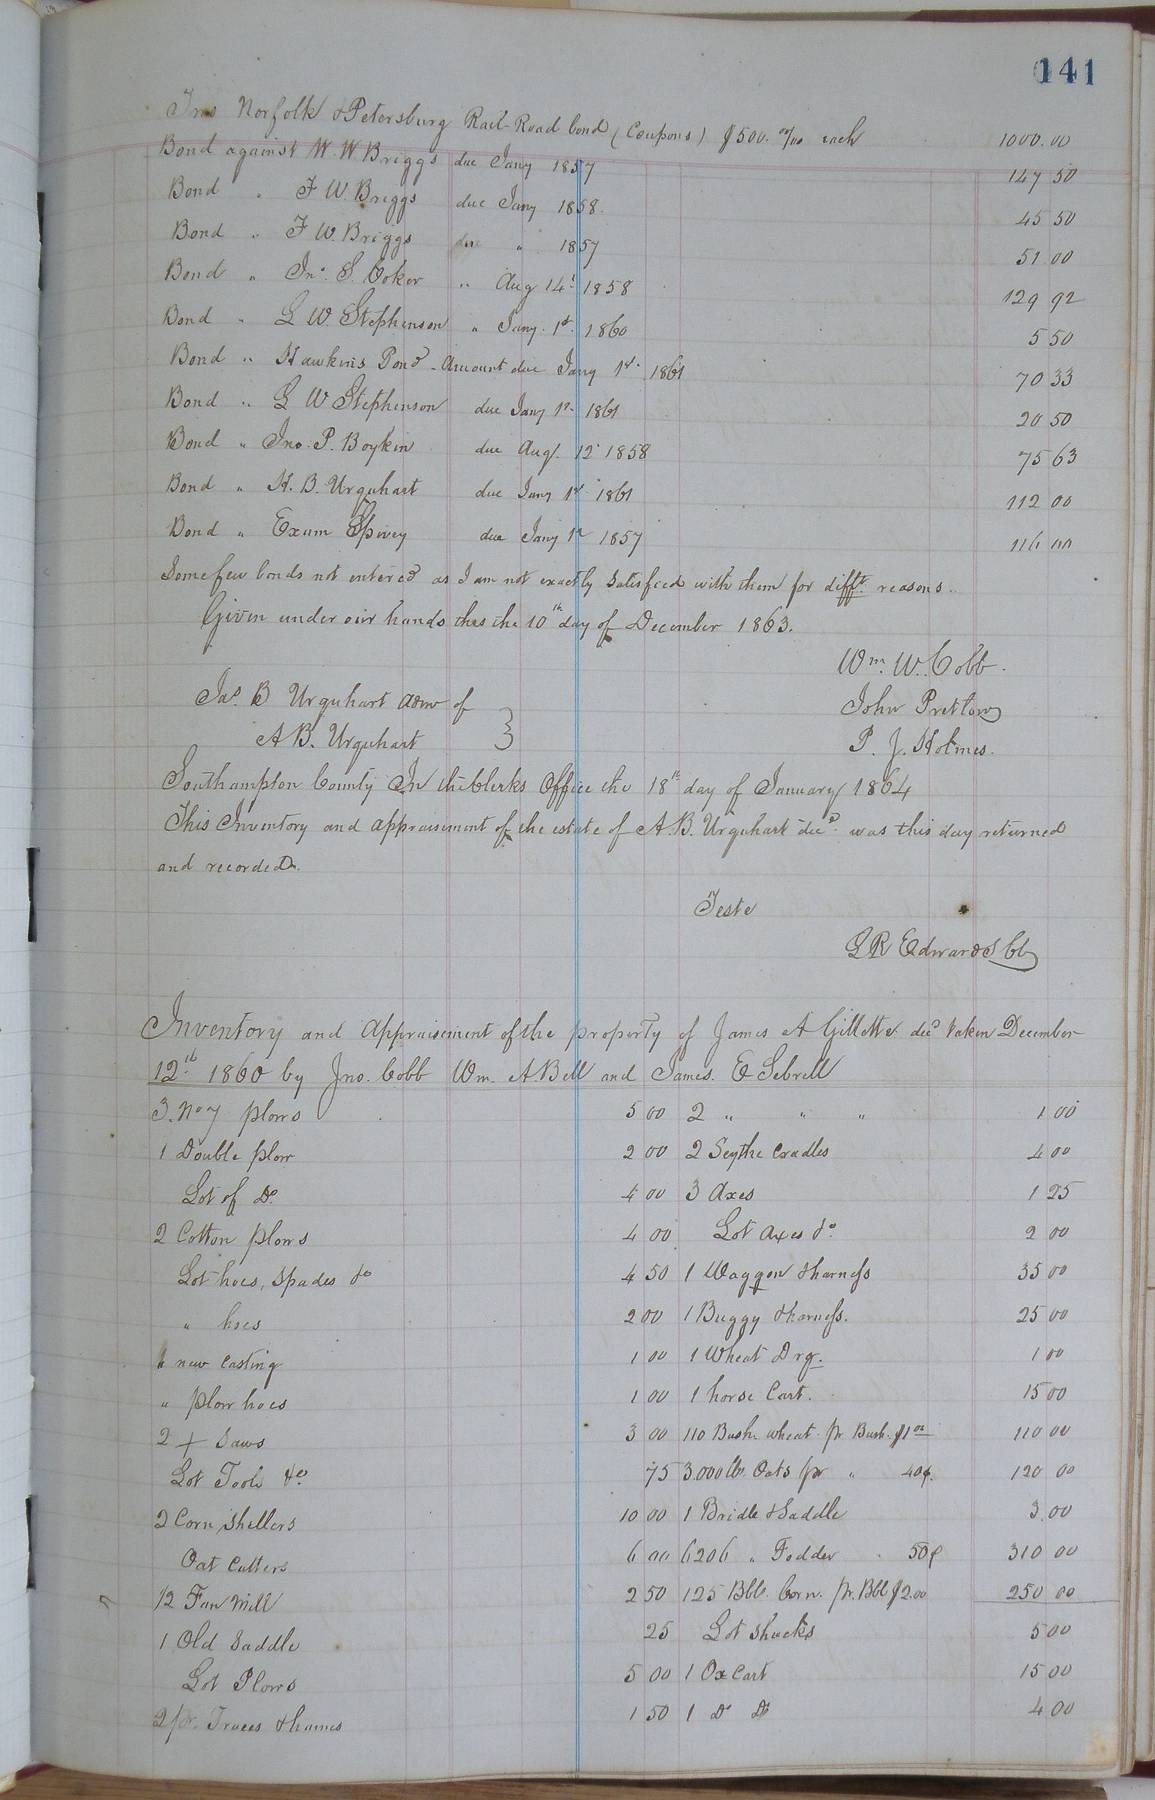 141
Two Norfolk & Petersburg Rail-Road bond (Coupons) $500. 00/100 each 1000.00
Bond against W. W Briggs due Jany 1857 147 50
Bond " F W. Briggs due Jany 1858. 45 50
Bond " F W. Briggs due " 1857 51 00
Bond " Jno. S. Coker " Aug 14th 1858 129 92
Bond " L W. Stephenson " Jany. 1st. 1860 5 50
Bond " Hawkins Pond - Amount due Jany 1st. 1861 70 33
Bond " L W Stephenson due Jany 1st. 1861 20 50
Bond " Jno. P. Boykin due Aug. 12 1858 75 63
Bond " H. B. Urquhart due Jany 1st 1861 112 00
Bond " Exum Spivey due Jany 1st 1857 116 00
Some few bonds not entered as I am not exactly satisfied with them for difft. reasons.
Given under our hands this the 10th day of December 1863.
Wm. W. Cobb.
Jas. B Urquhart admr of John Pretlow
A B. Urquhart } P. J. Holmes.
Southampton County In the Clerks Office the 18th day of January 1864
This Inventory and appraisement of the estate of A. B. Urquhart decd. was this day returned
and recorded.
Teste
L R Edwards Clk
Inventory and Appraisement of the property of James A Gillette decd taken December
12th. 1860 by Jno. Cobb Wm. A. Bell and James. E Sebrell
3. No 7 plows 5 00 2 " " " 1 00
1 Double plow 2 00 2 Scythe Cradles 4 00
Lot of Do 4 00 3 Axes 1 25
2 Cotton plows 4 00 Lot Axes &c. 2 00
Lot hoes, Spades &c 4 50 1 Waggon & harness 35 00
" hoes 2 00 1 Buggy & harness. 25 00
1 new Casting 1 00 1 Wheat Drg. 1 00
" plow hoes 1 00 1 horse Cart. 15 00
2 + Saws 3 00 110 Bush. wheat pr Bush. $1 00 110 00
Lot Tools &c 75 3.000 lb. Oats pr " 40¢. 120 00
2 Corn Shellers 10 00 1 Bridle & Saddle 3.00
Oat Cutters 6 00 6206 " Fodder 50¢ 310 00
1/2 Fan Mill 2 50 125 Bbl. Corn. pr. Bbl $2.00 250 00
1 Old Saddle 25 Lot Shucks 5 00
Lot Plows 5 00 1 Ox Cart 15 00
2 pr. Traces & hames 1 50 1 Do Do 4 00